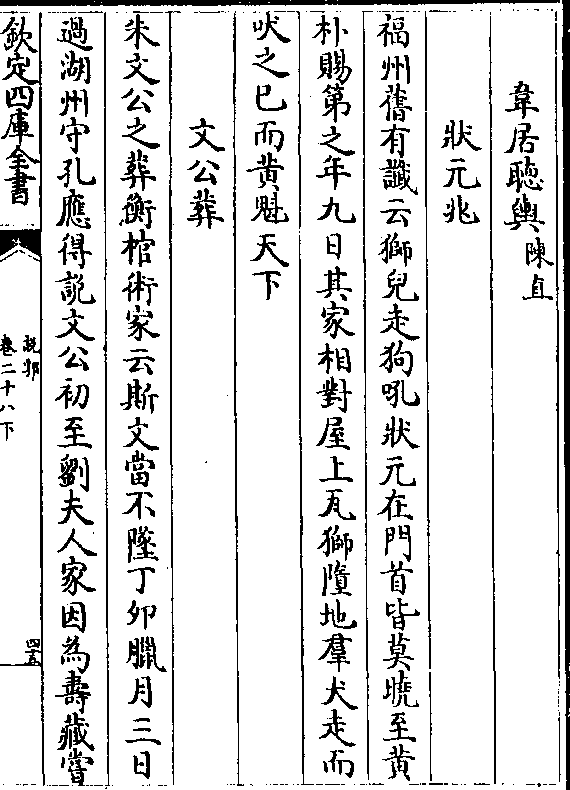 韋居聽輿陳直
狀元兆
福州舊有讖云獅兒走狗吼狀元在門首皆莫曉至黄
朴賜第之年九日其家相對屋上瓦獅隳地羣犬走而
吠之已而黄魁天下
文公葬
朱文公之葬衡棺術家云斯文當不墜丁夘臘月三日
過湖州守孔應得說文公初至劉夫人家因為壽藏嘗
欽定四庫全書
說郛
卷二十八下
四五